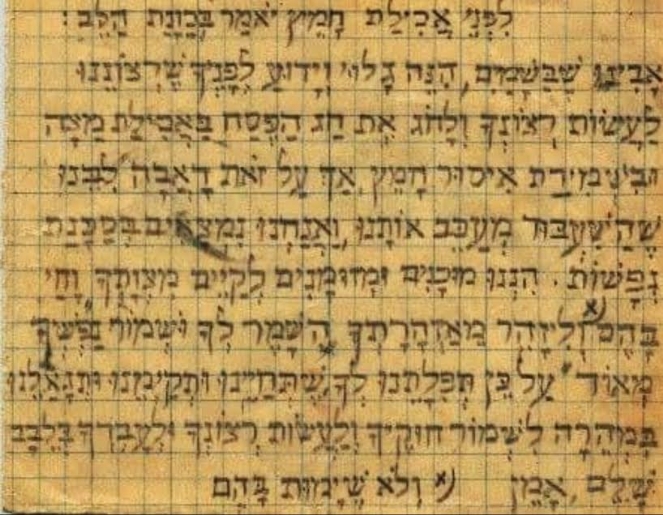 לִפְנֵי אֲכִילַת חָמֵץ יֹאמַר בְּכַוָּנַת הַלֵּב:
אָבִינוּ שֶׁבַּשָּׁמַיִם, הִנֵּה גָלוּי וְיָדוּעַ לְפָנֶיךָ שֶׁרְצוֹנֵנוּ
לַעֲשׂוֹת רְצוֹנְךָ וְלָחֹג אֶת חַג הַפֶּסַח בַּאֲכִילַת מַצָּה
וּבִשְׁמִירַת אִיסוּר חָמֵץ, אַךְ עַל זֹאת דָּאֲבָה לִבֵּנוּ
שֶׁהַשִּׁעְבּוּד מְעַכֵּב אוֹתָנוּ, וַאֲנַחְנוּ נִמְצָאִים בְּסַכָּנַת
נְפָשׁוֹת. הִנְנוּ מוּכָנִים וּמְזוּמָּנִים לְקַיֵּים מִצְוֹתֶךָ "וָחַי
בָּהֶם" א) וְלִיזָּהֵר מֵאַזְהָרָתְךָ "הִשָּׁמֶר לְךָ וּשְׁמוֹר נַפְשְׁךָ
מְאוֹד" עַל כֵּן תְּפִלָּתֵנוּ לְךָ, שֶׁתְּחַיֵּינוּ וּתְקַיְּמֵנוּ וְתִגְאָלֵנוּ
בִּמְהֵרָה לִשְׁמוֹר חוּקֶּיךָ וְלַעֲשׂוֹת רְצוֹנְךָ וּלְעָבְדְךָ בְּלֵבָב
שָׁלֵם, אָמֵן א) וְלֹא שֶׁיָּמוּת בָּהֶם